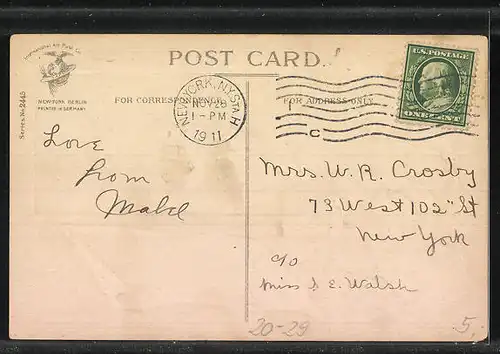 International Art Pub. Co.
NEW YORK BERLIN
PRINTED IN GERMANY
Series No. 2445
POST CARD.
FOR CORRESPONDENCE
FOR ADDRESS ONLY
NEW YORK, N.Y. STA H
NOV 28
1-PM
1911
C
U.S. POSTAGE
ONE CENT
Love
from
Mabel
Mrs. W. R. Crosby
73 West 102" St
New York
c/o
Miss S E. Walsh
20-29
5,